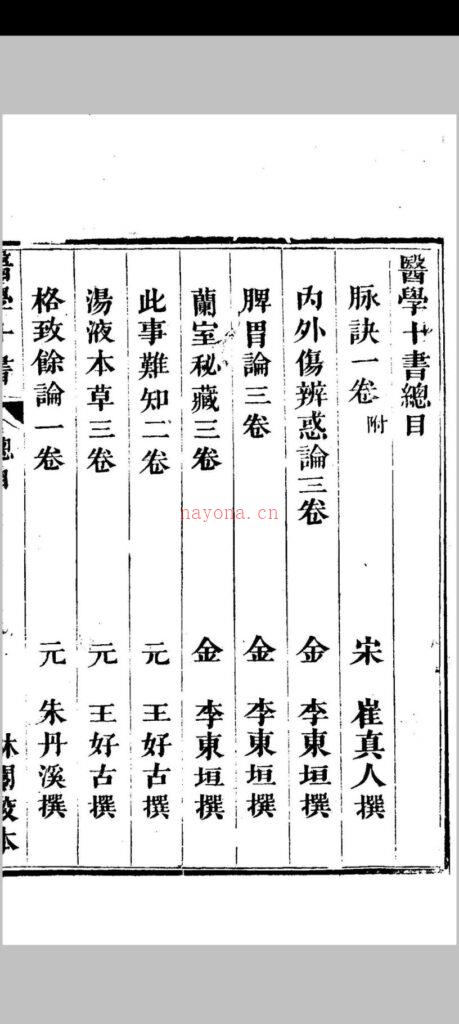 醫學十書總目
脉訣一卷附 宋 崔真人撰
內外傷辨惑論三卷 金 李東垣撰
脾胃論三卷 金 李東垣撰
蘭室秘藏三卷 金 李東垣撰
此事難知二卷 元 王好古撰
湯液本草三卷 元 王好古撰
格致餘論一卷 元 朱丹溪撰
醫學十書 總目
nayona.cn